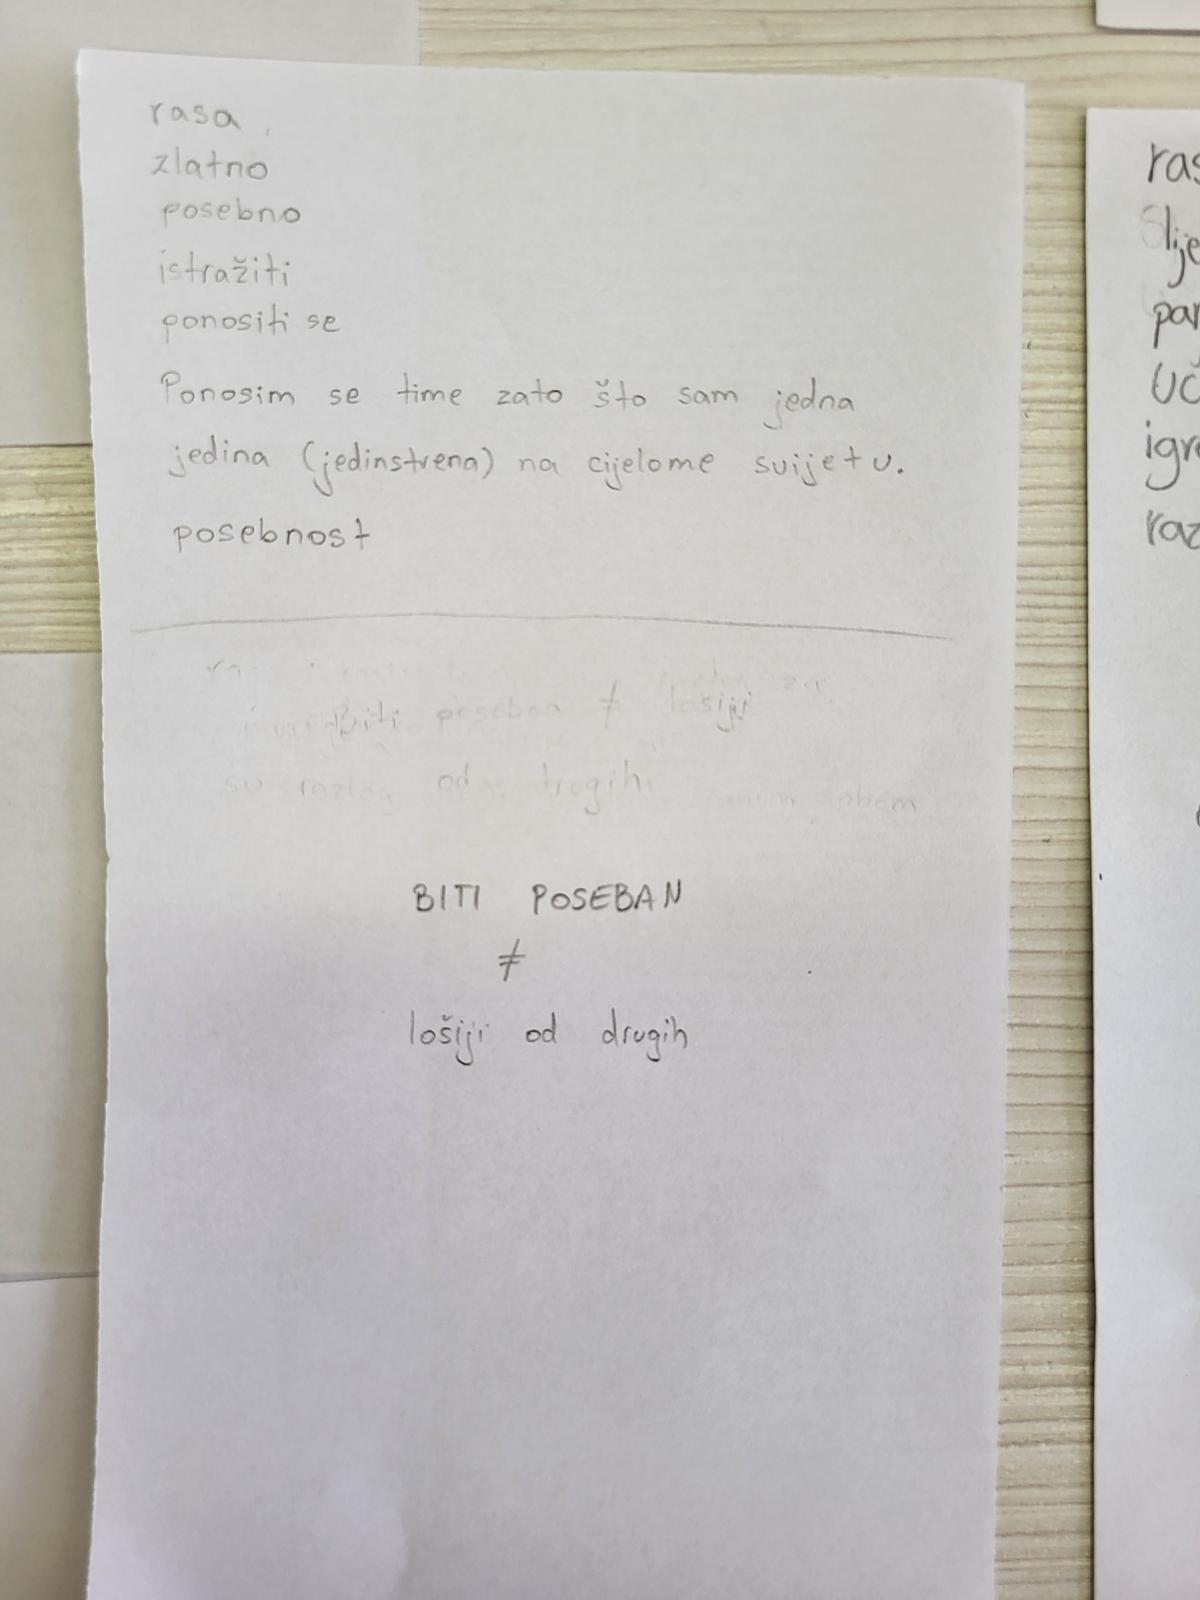 rasa
zlatno
posebno
istražiti
ponositi se
Ponosim se time zato što sam jedna
jedina (jedinstvena) na cijelome svijetu.
posebnost
biti poseban ≠ lošiji
su razlog od drugih
BITI POSEBAN
≠
lošiji od drugih
ras
slije
par
uč
igr
raz